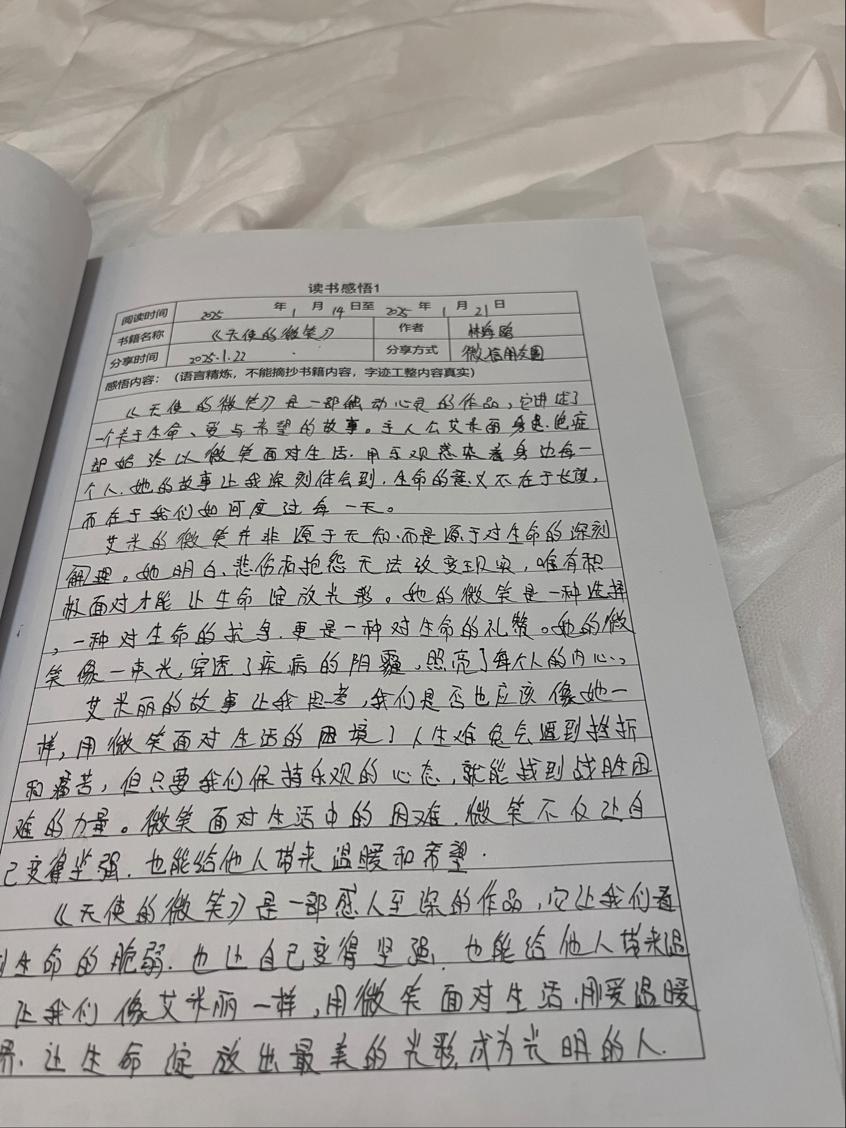 读书感悟1
阅读时间 2025 年 1 月 14 日至 2025 年 1 月 21 日
书籍名称 《天使的微笑》 作者 林
分享时间 2025.1.22 分享方式 微信朋友圈
感悟内容：（语言精炼，不能摘抄书籍内容，字迹工整内容真实）
《天使的微笑》是一部触动心灵的作品，它讲述了
一个关于生命、爱与希望的故事。主人公艾米丽身患绝症
却始终以微笑面对生活，用乐观感染着身边每一
个人。她的故事让我深刻体会到，生命的意义不在于长度，
而在于我们如何度过每一天。
艾米的微笑并非源于无知，而是源于对生命的深刻
解理。她明白，悲伤和抱怨无法改变现实，唯有积
极面对才能让生命绽放光彩。她的微笑是一种选择
，一种对生命的抗争，更是一种对生命的礼赞。她的微
笑像一束光，穿透了疾病的阴霾，照亮了每个人的内心。
艾米丽的故事让我思考，我们是否也应该像她一
样，用微笑面对生活的困境了人生难免会遇到挫折
和痛苦，但只要我们保持乐观的心态，就能找到战胜困
难的力量。微笑面对生活中的困难，微笑不仅让自
己变得坚强，也能给他人带来温暖和希望.
《天使的微笑》是一部感人至深的作品，它让我们看
到生命的脆弱，也让自己变得坚强，也能给他人带来温
让我们像艾米丽一样，用微笑面对生活，用爱温暖
界，让生命绽放出最美的光彩，成为光明的人.